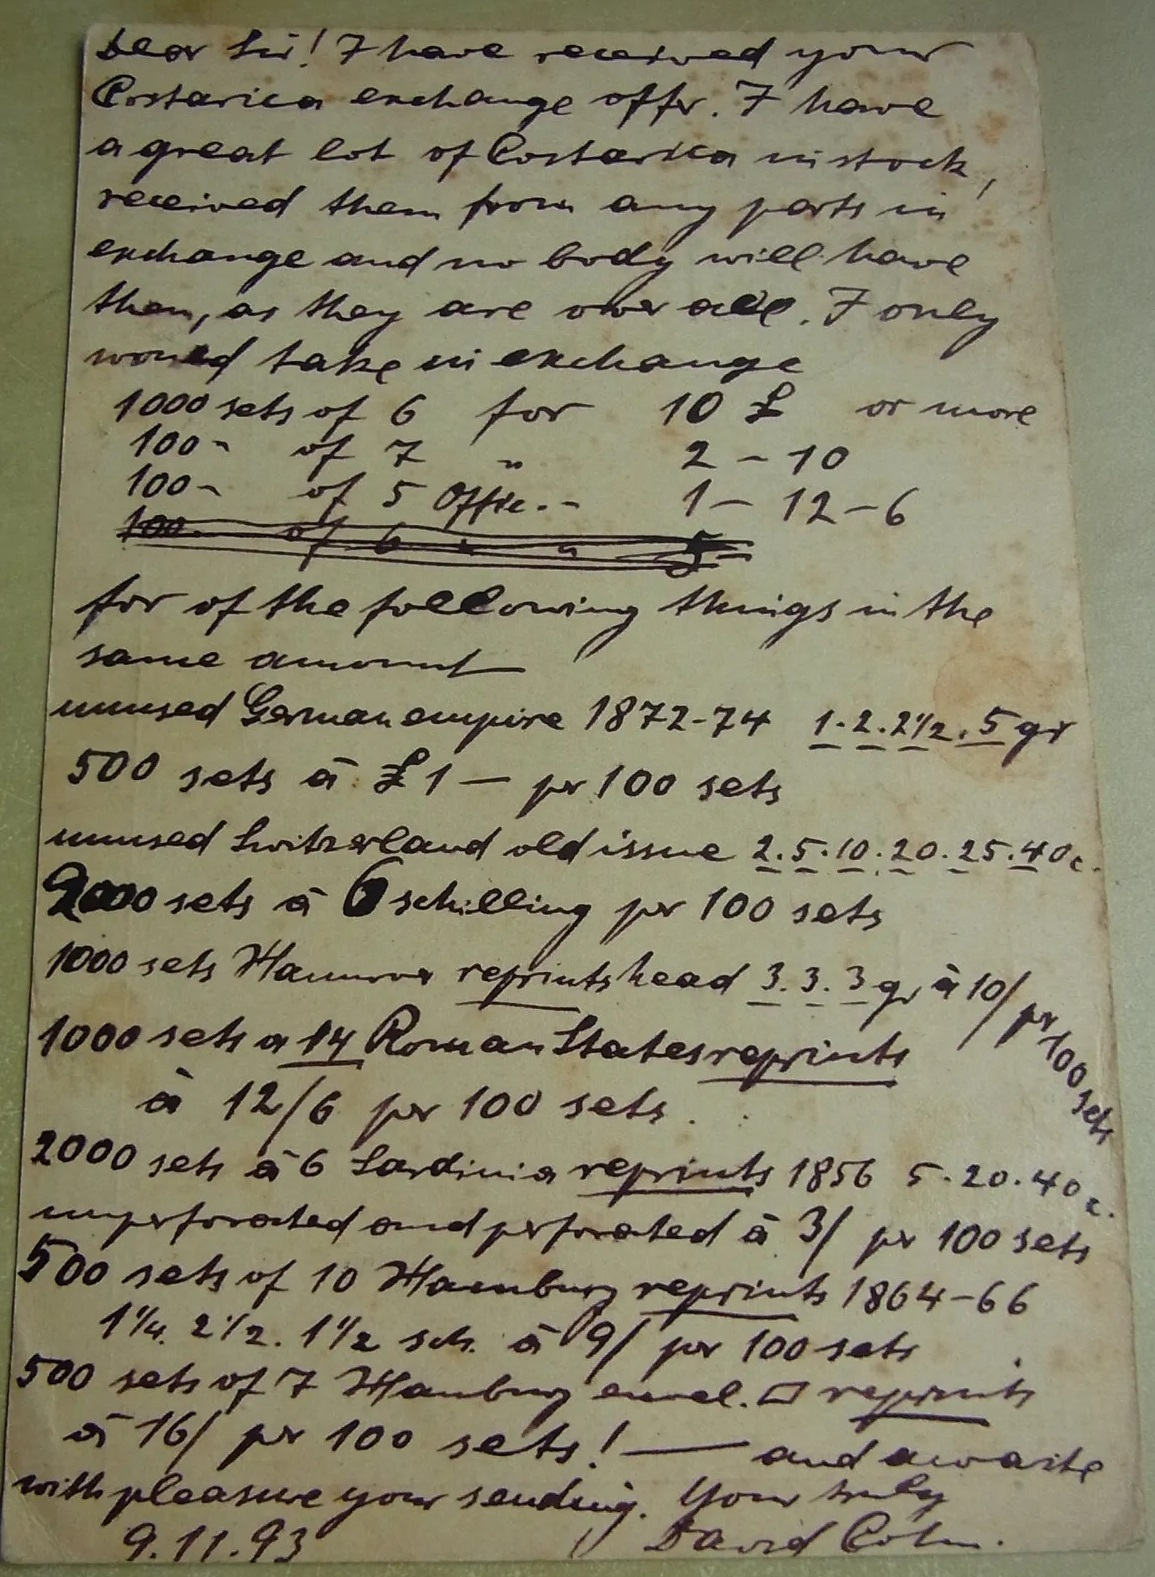 Dear Sir! I have received your
Costarica exchange offer. I have
a great lot of Costarica in stock,
received them from any parts in
exchange and no body will have
them, as they are over all. I only
would take in exchange
1000 sets of 6 for 10 £ or more
100 - of 7 " 2 - 10
100 - of 5 Offic. - 1 - 12 - 6
100 - of 6 " " 5 -
for of the following things in the
same amount
unused German empire 1872-74 1. 2. 2½. 5 gr
500 sets à £ 1 — pr 100 sets
unused Switzerland old issue 2. 5. 10. 20. 25. 40 c.
2000 sets à 6 schilling pr 100 sets
1000 sets Hannover reprints head 3. 3. 3 gr à 10/ pr 100 sets
1000 sets a 14 Roman States reprints
à 12/6 pr 100 sets.
2000 sets à 6 Sardinia reprints 1856 5. 20. 40 c.
unperforated and perforated à 3/ pr 100 sets
500 sets of 10 Hamburg reprints 1864-66
1¼. 2½. 1½ sch. à 9/ pr 100 sets
500 sets of 7 Hamburg envel. □ reprints
à 16/ pr 100 sets! — and awaite
with pleasure your sending. Your truly
9.11.93 David Cohn.